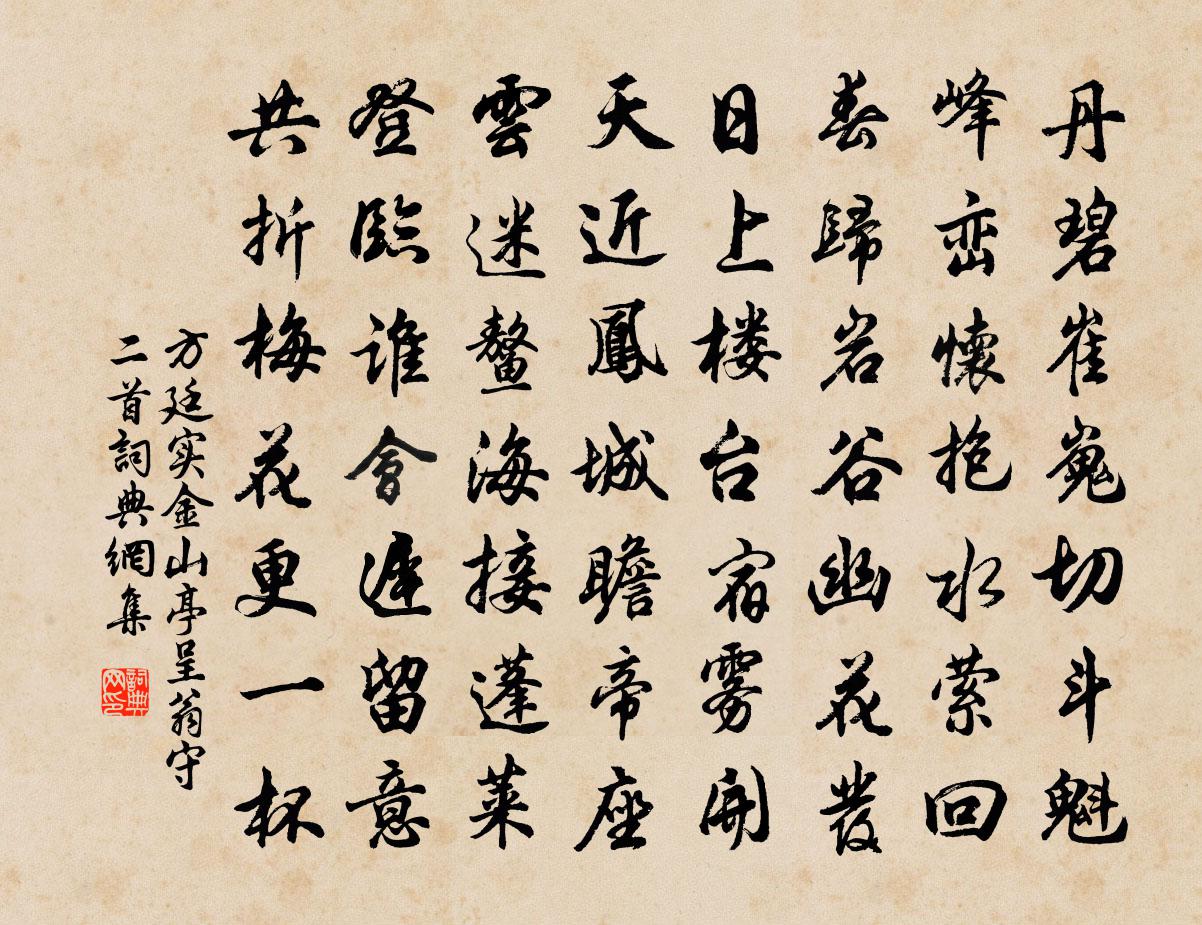 丹碧崔嵬切斗魁
峰峦懷抱水萦回
春歸岩谷幽花發
日上楼台宿雾開
天近鳳城瞻帝座
雲迷鳌海接蓬莱
登臨谁會遅留意
共折梅花更一杯
方廷实金山亭呈翁守
二首詞典網集
詞典网印